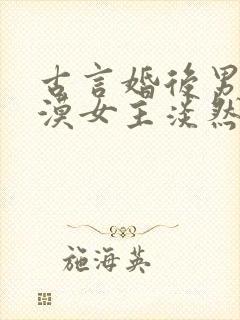 古言婚后男
漠女主淡然
施海英